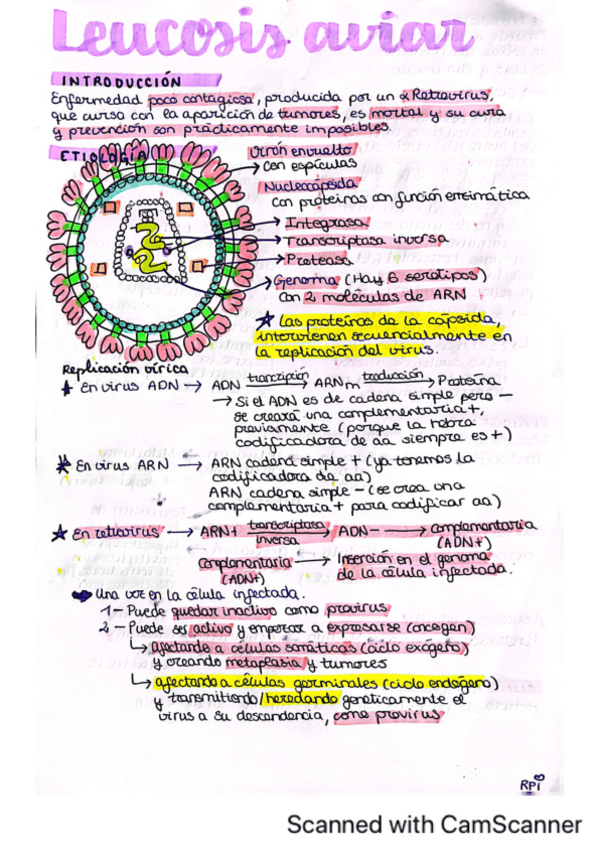 Leucosis aviar
INTRODUCCIÓN
Enfermedad poco contagiosa, producida por un Retrovirus,
que cursa con la aparición de tumores, es mortal y su cura
y prevención son prácticamente imposibles.
ETIOLOGÍA
Virón envuelto
con espículas
Nucleocápsida
con proteínas con función enzimática
Integrasa
Transcriptasa inversa
Proteasa
Genoma (Hay 6 serotipos)
con 2 moléculas de ARN
Las proteínas de la cápsida,
intervienen secuencialmente en
la replicación del virus.
Replicación vírica
En virus ADN → ADN transcripción → ARNm traducción → Proteína
→ Si el ADN es de cadena simple pero -
se creará una complementaria +,
previamente (porque la hebra
codificadora de aa siempre es +)
En virus ARN → ARN cadena simple + (ya tenemos la
codificadora de aa)
ARN cadena simple - (se crea una
complementaria + para codificar aa)
En retrovirus → ARN+ transcriptasa inversa → ADN- → complementaria
(ADN+)
complementaria → Inserción en el genoma
(ADN+) de la célula infectada.
Una vez en la célula infectada.
1- Puede quedar inactivo como provirus
2- Puede ser activo y empezar a expresarse (oncogen)
↳ afectando a células somáticas (ciclo exógeno)
y creando metaplasia y tumores
↳ afectando a células germinales (ciclo endógeno)
y transmitiendo/heredando genéticamente el
virus a su descendencia, como provirus
RPi
Scanned with CamScanner